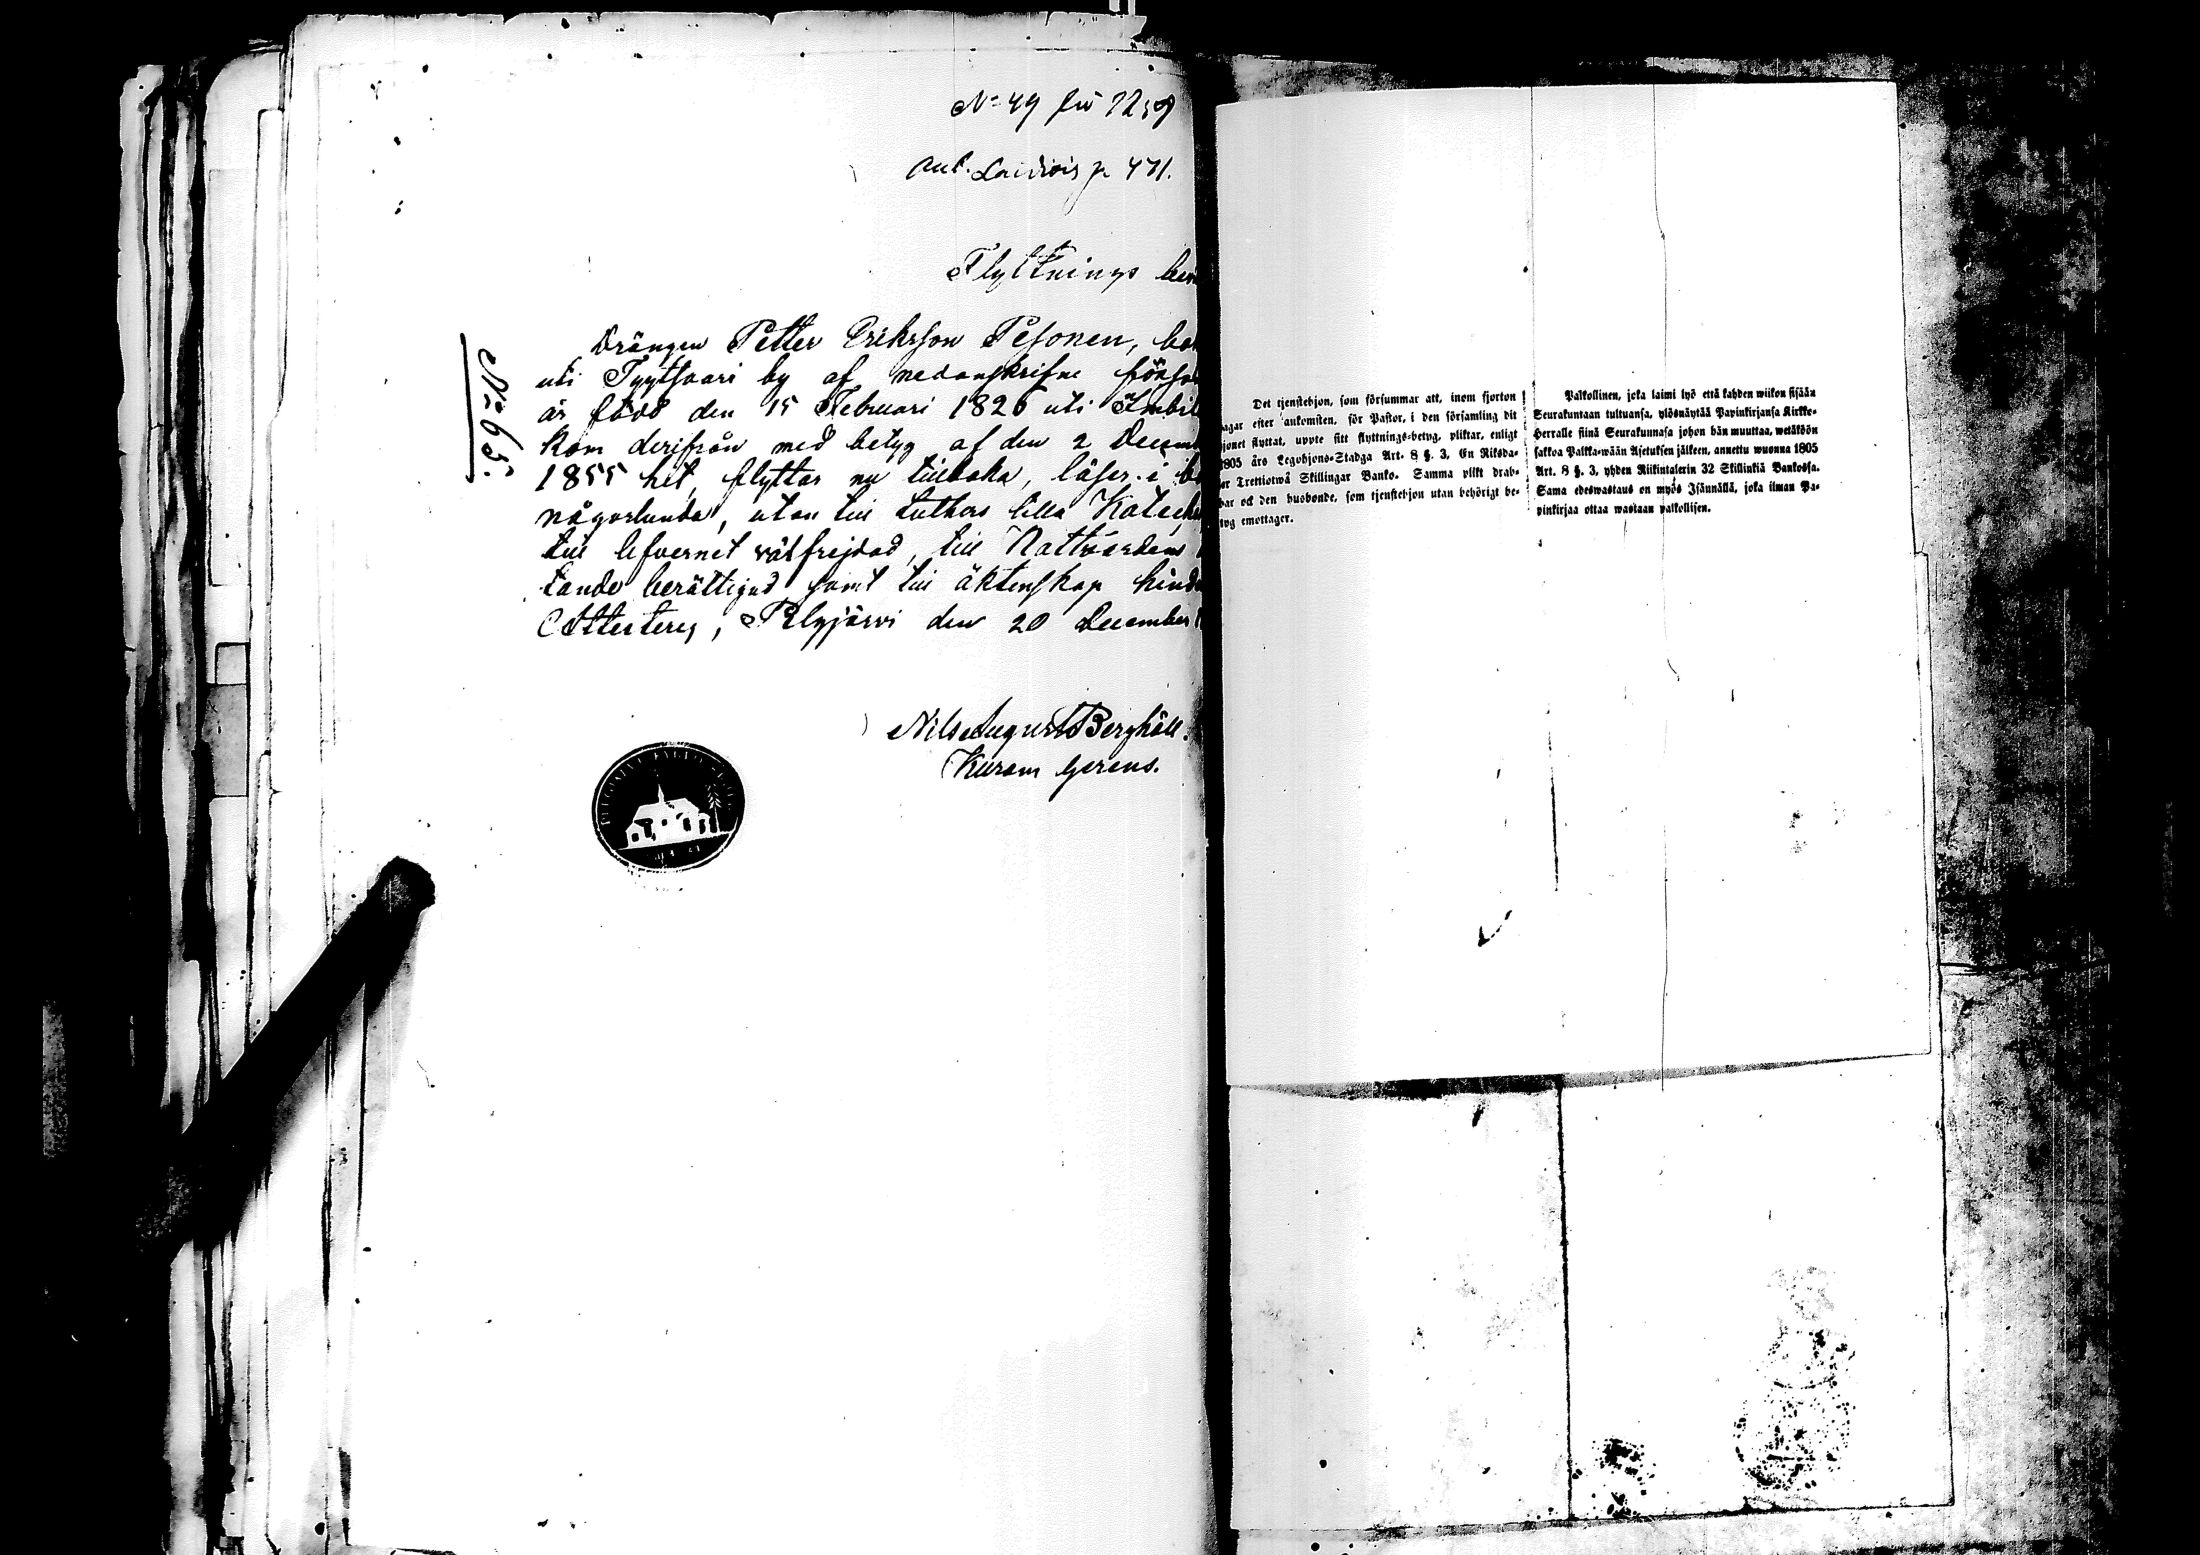 No 49 für 1259
Ant. Laidiois p 471.
Flyttnings
No 65.
Drängen Petter Eriksson Pesonen,
uti Tyytsaari by af nedanskrifne
är född den 15 Februari 1826 uti
kom derifrån med betyg af den 2
1855 hit, flyttar nu tillbaka, läser i
någorlunda, utan till Luthers lilla
till lefvernet välfrejdad, till Nattvardens
tande berättigad samt till äktenskap
Attesterej, Pelgjärvi den 20 December
Nils August Berghäll.
Kuram gerens.
Det tjenstehjon, som försummar att, inom fjorton
dagar efter ankomsten, för Pastor, i den församling dit
hjonet flyttat, uppte sitt flyttnings-betyg, pliktar, enligt
1805 års Legohjons-Stadga Art. 8 §. 3, En Riksda-
ler Trettiotwå Skillingar Banko. Samma plikt drab-
bar ock den husbonde, som tjenstehjon utan behörigt be-
tyg emottager.
Palkollinen, joka laimi lyö että kahden wiikon sisään
Seurakuntaan tultuansa, ylösnäytää Papinkirjansa Kirkko-
Herralle siinä Seurakunnasa johon hän muuttaa, wetäköön
sakkoa Palkka-wään Asetuksen jälkeen, annettu wuonna 1805
Art. 8 §. 3, yhden Riikintalerin 32 Skillinkiä Bankossa.
Sama edeswastaus on myös Isännällä, joka ilman Pa-
pinkirjaa ottaa wastaan palkollisen.